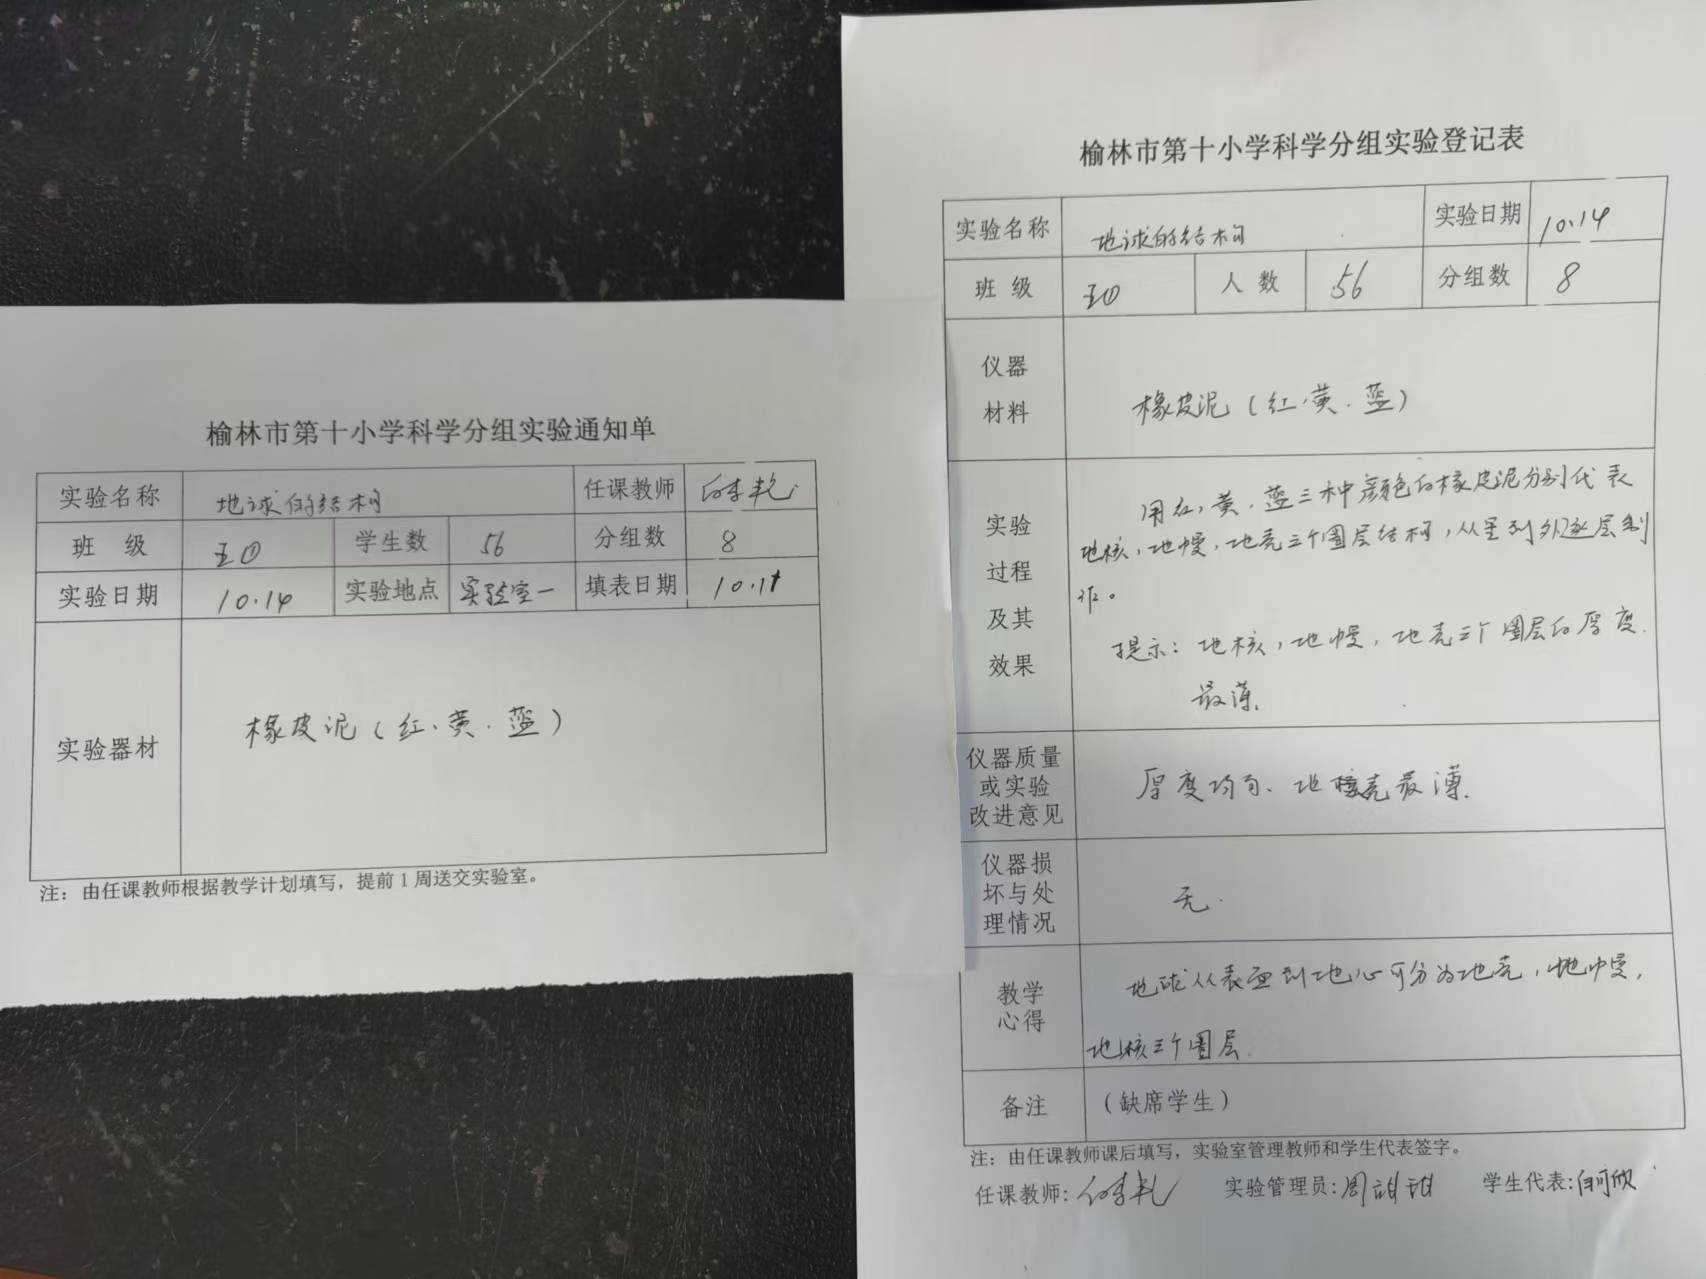 榆林市第十小学科学分组实验通知单
实验名称 地球的结构 任课教师
班 级 五④ 学生数 56 分组数 8
实验日期 10.14 实验地点 实验室一 填表日期 10.11
实验器材 橡皮泥（红、黄、蓝）
注：由任课教师根据教学计划填写，提前1周送交实验室。
榆林市第十小学科学分组实验登记表
实验名称 地球的结构 实验日期 10.14
班 级 五④ 人 数 56 分组数 8
仪器
材料
橡皮泥（红、黄、蓝）
实验
过程
及其
效果
用红，黄、蓝三种颜色的橡皮泥分别代表
地核，地幔，地壳三个圈层结构，从里到外逐层制
作。
提示：地核，地幔，地壳三个圈层的厚度
最薄.
仪器质量
或实验
改进意见
厚度均匀、地壳最薄.
仪器损
坏与处
理情况
无.
教学
心得
地球从表面到地心可分为地壳，地幔，
地核三个圈层
备注 （缺席学生）
注：由任课教师课后填写，实验室管理教师和学生代表签字。
任课教师: 实验管理员:周甜甜 学生代表: